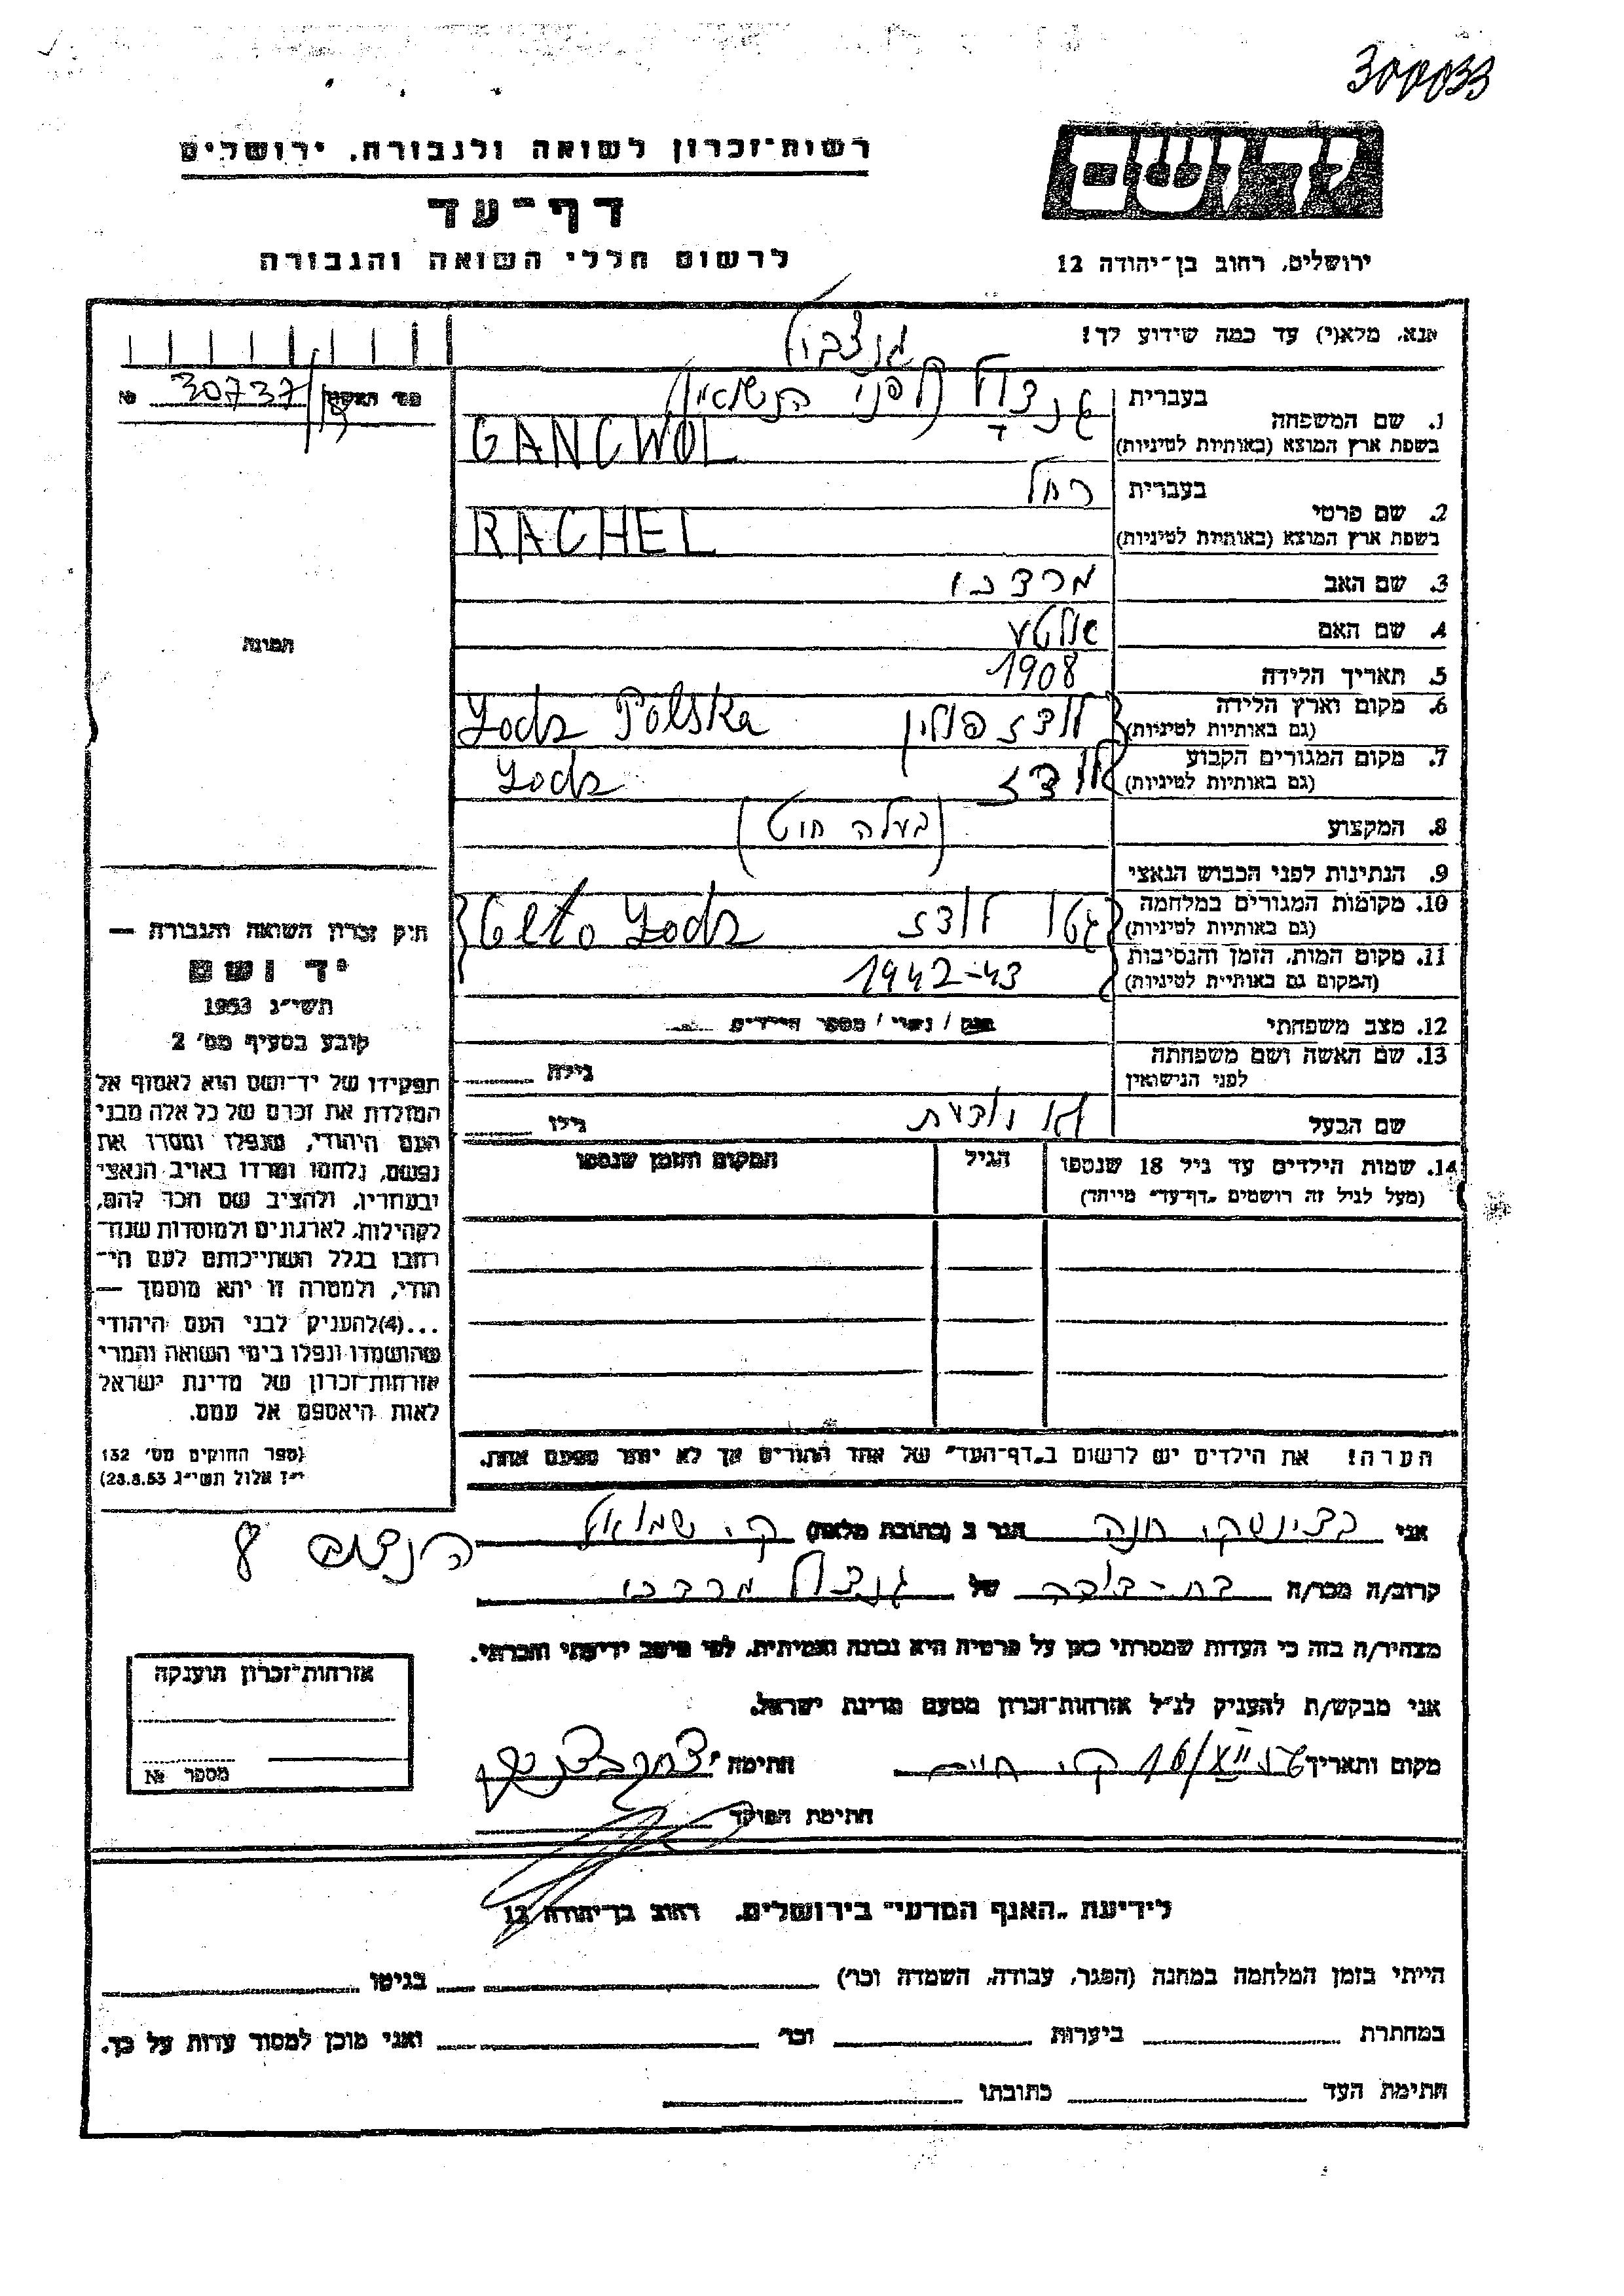 300033
רשות־זכרון לשואה ולגבורה, ירושלים
דף־עד
לרשום חללי השואה והגבורה
יד ושם
ירושלים, רחוב בן־יהודה 12
אנא, מלא(י) עד כמה שידוע לך!
גנצבול
№ 30737
1. שם המשפחה
בעברית גנצול (לפני הנשואין)
בשפת ארץ המוצא (באותיות לטיניות) GANCWOL
2. שם פרטי
בעברית רחל
בשפת ארץ המוצא (באותיות לטיניות) RACHEL
3. שם האב מרדכי
4. שם האם אלטע
5. תאריך הלידה 1908
6. מקום וארץ הלידה (גם באותיות לטיניות) לודז פולין Lodz Polska
7. מקום המגורים הקבוע (גם באותיות לטיניות) לודז Lodz
8. המקצוע (בעלה חוט)
9. הנתינות לפני הכבוש הנאצי
10. מקומות המגורים במלחמה (גם באותיות לטיניות) גטו לודז Geto Lodz
11. מקום המות, הזמן והנסיבות (המקום גם באותיות לטיניות) 1942-43
12. מצב משפחתי / נשוי / מספר הילדים
13. שם האשה ושם משפחתה לפני הנישואין גילה
שם הבעל לא ידעת גילו
14. שמות הילדים עד גיל 18 שנספו
(מעל לגיל זה רושמים „דף־עד״ מיוחד)
הגיל
המקום והזמן שנספו
הערה! את הילדים יש לרשום ב„דף־העד״ של אחד ההורים אך לא יותר מפעם אחת.
התמונה
חוק זכרון השואה והגבורה —
יד ושם
תשי״ג 1953
קובע בסעיף מס׳ 2
תפקידו של יד־ושם הוא לאסוף אל
המולדת את זכרם של כל אלה מבני
העם היהודי, שנפלו ומסרו את
נפשם, נלחמו ומרדו באויב הנאצי
ובעוזריו, ולהציב שם וזכר להם,
לקהילות, לארגונים ולמוסדות שנח־
רבו בגלל השתייכותם לעם הי־
הודי, ולמטרה זו יהא מוסמך —
...(4) להעניק לבני העם היהודי
שהושמדו ונפלו בימי השואה והמרי
אזרחות־זכרון של מדינת ישראל
לאות היאספם אל עמם.
(ספר החוקים מס׳ 132
י״ז אלול תשי״ג 28.8.53)
אני חנה הגר ב (כתובת מלאה) ק. שמואל
8
קרוב/ה מכר/ה של גנצול מרדכי
מצהיר/ה בזה כי העדות שמסרתי כאן על פרטיה היא נכונה ואמיתית, לפי מיטב ידיעתי והכרתי.
אני מבקש/ת להעניק לנ״ל אזרחות־זכרון מטעם מדינת ישראל.
מקום ותאריך ק. חיים 16/ חתימה
חתימת הפוקד
אזרחות־זכרון הוענקה
מספר №
לידיעת „האגף המדעי״ בירושלים, רחוב בן־יהודה 12
הייתי בזמן המלחמה במחנה (הסגר, עבודה, השמדה וכו׳) בגיטו
במחתרת ביערות וכו׳ ואני מוכן למסור עדות על כך.
חתימת העד כתובתו